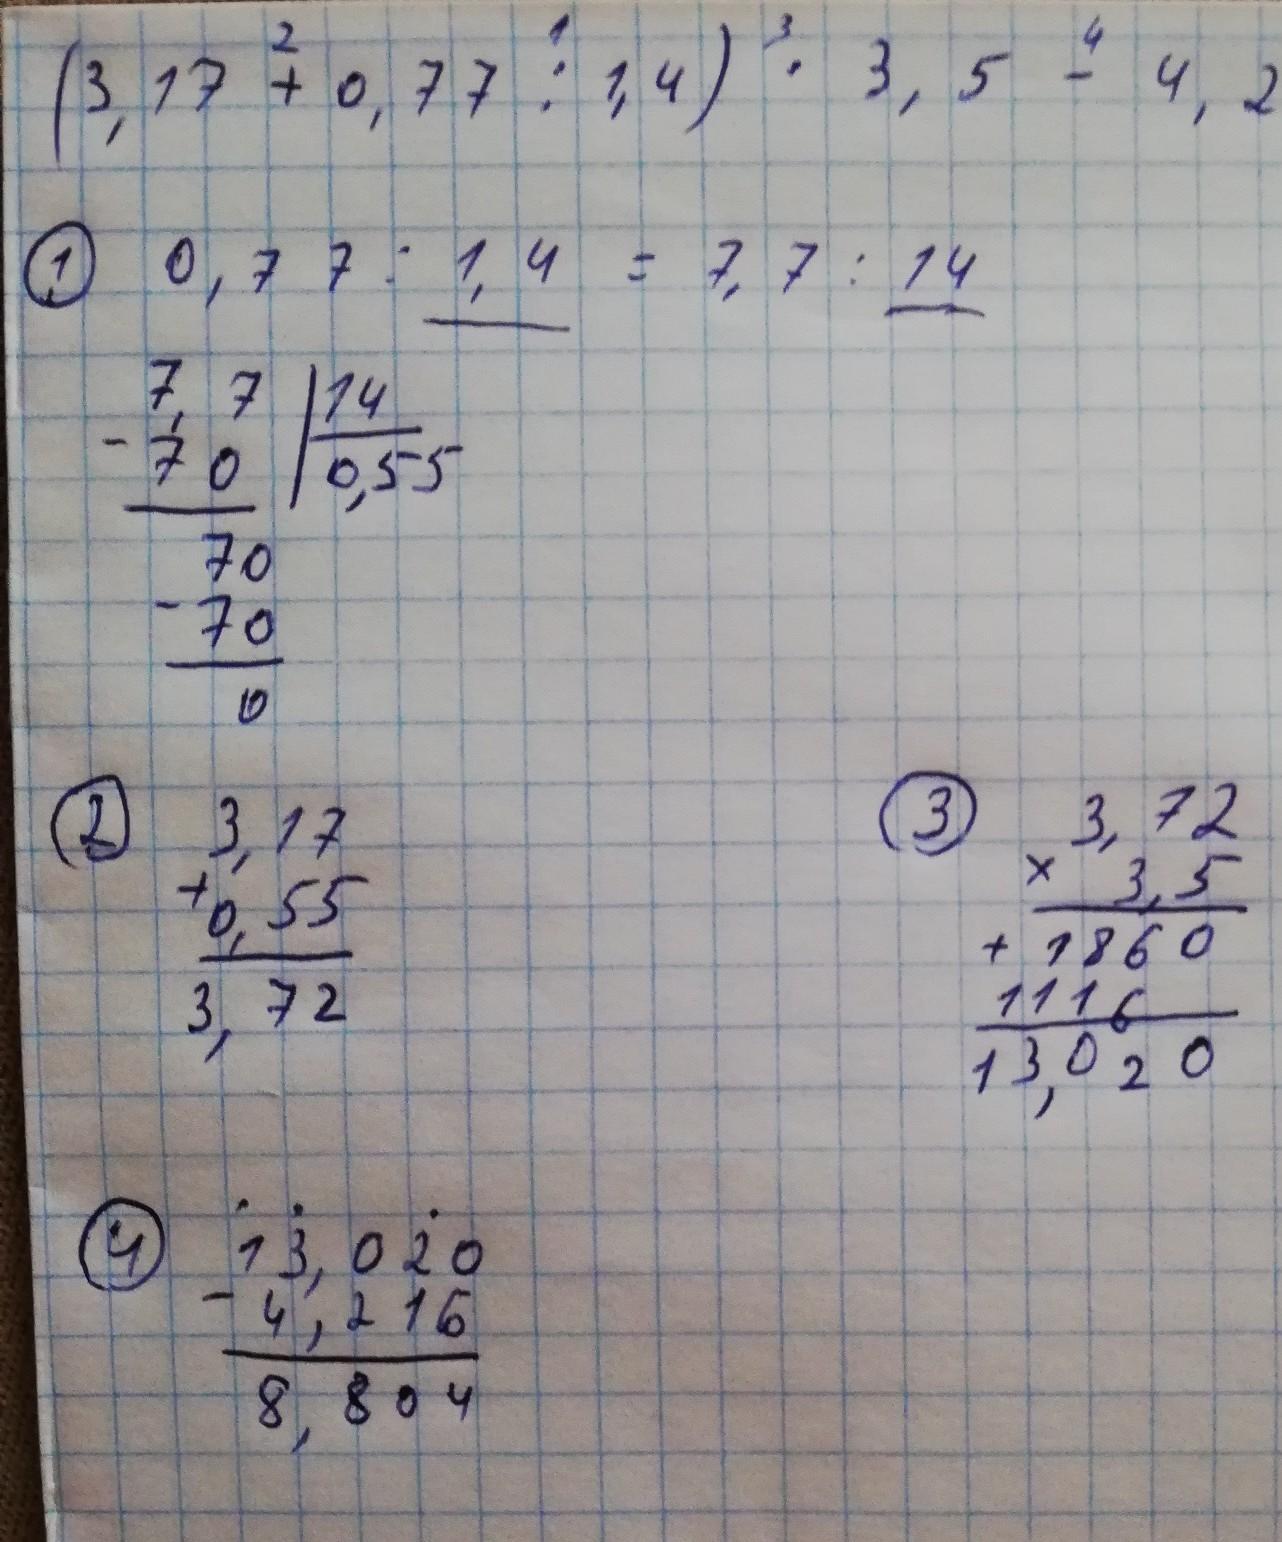 (3,17 + 0,77 : 1,4) · 3,5 - 4,2
2 1 3 4
① 0,77 : 1,4 = 7,7 : 14
7,7 | 14
- 70 | 0,55
70
- 70
0
② 3,17
+ 0,55
3,72
③ 3,72
× 3,5
+ 1860
1116
13,020
④ 13,020
- 4,216
8,804